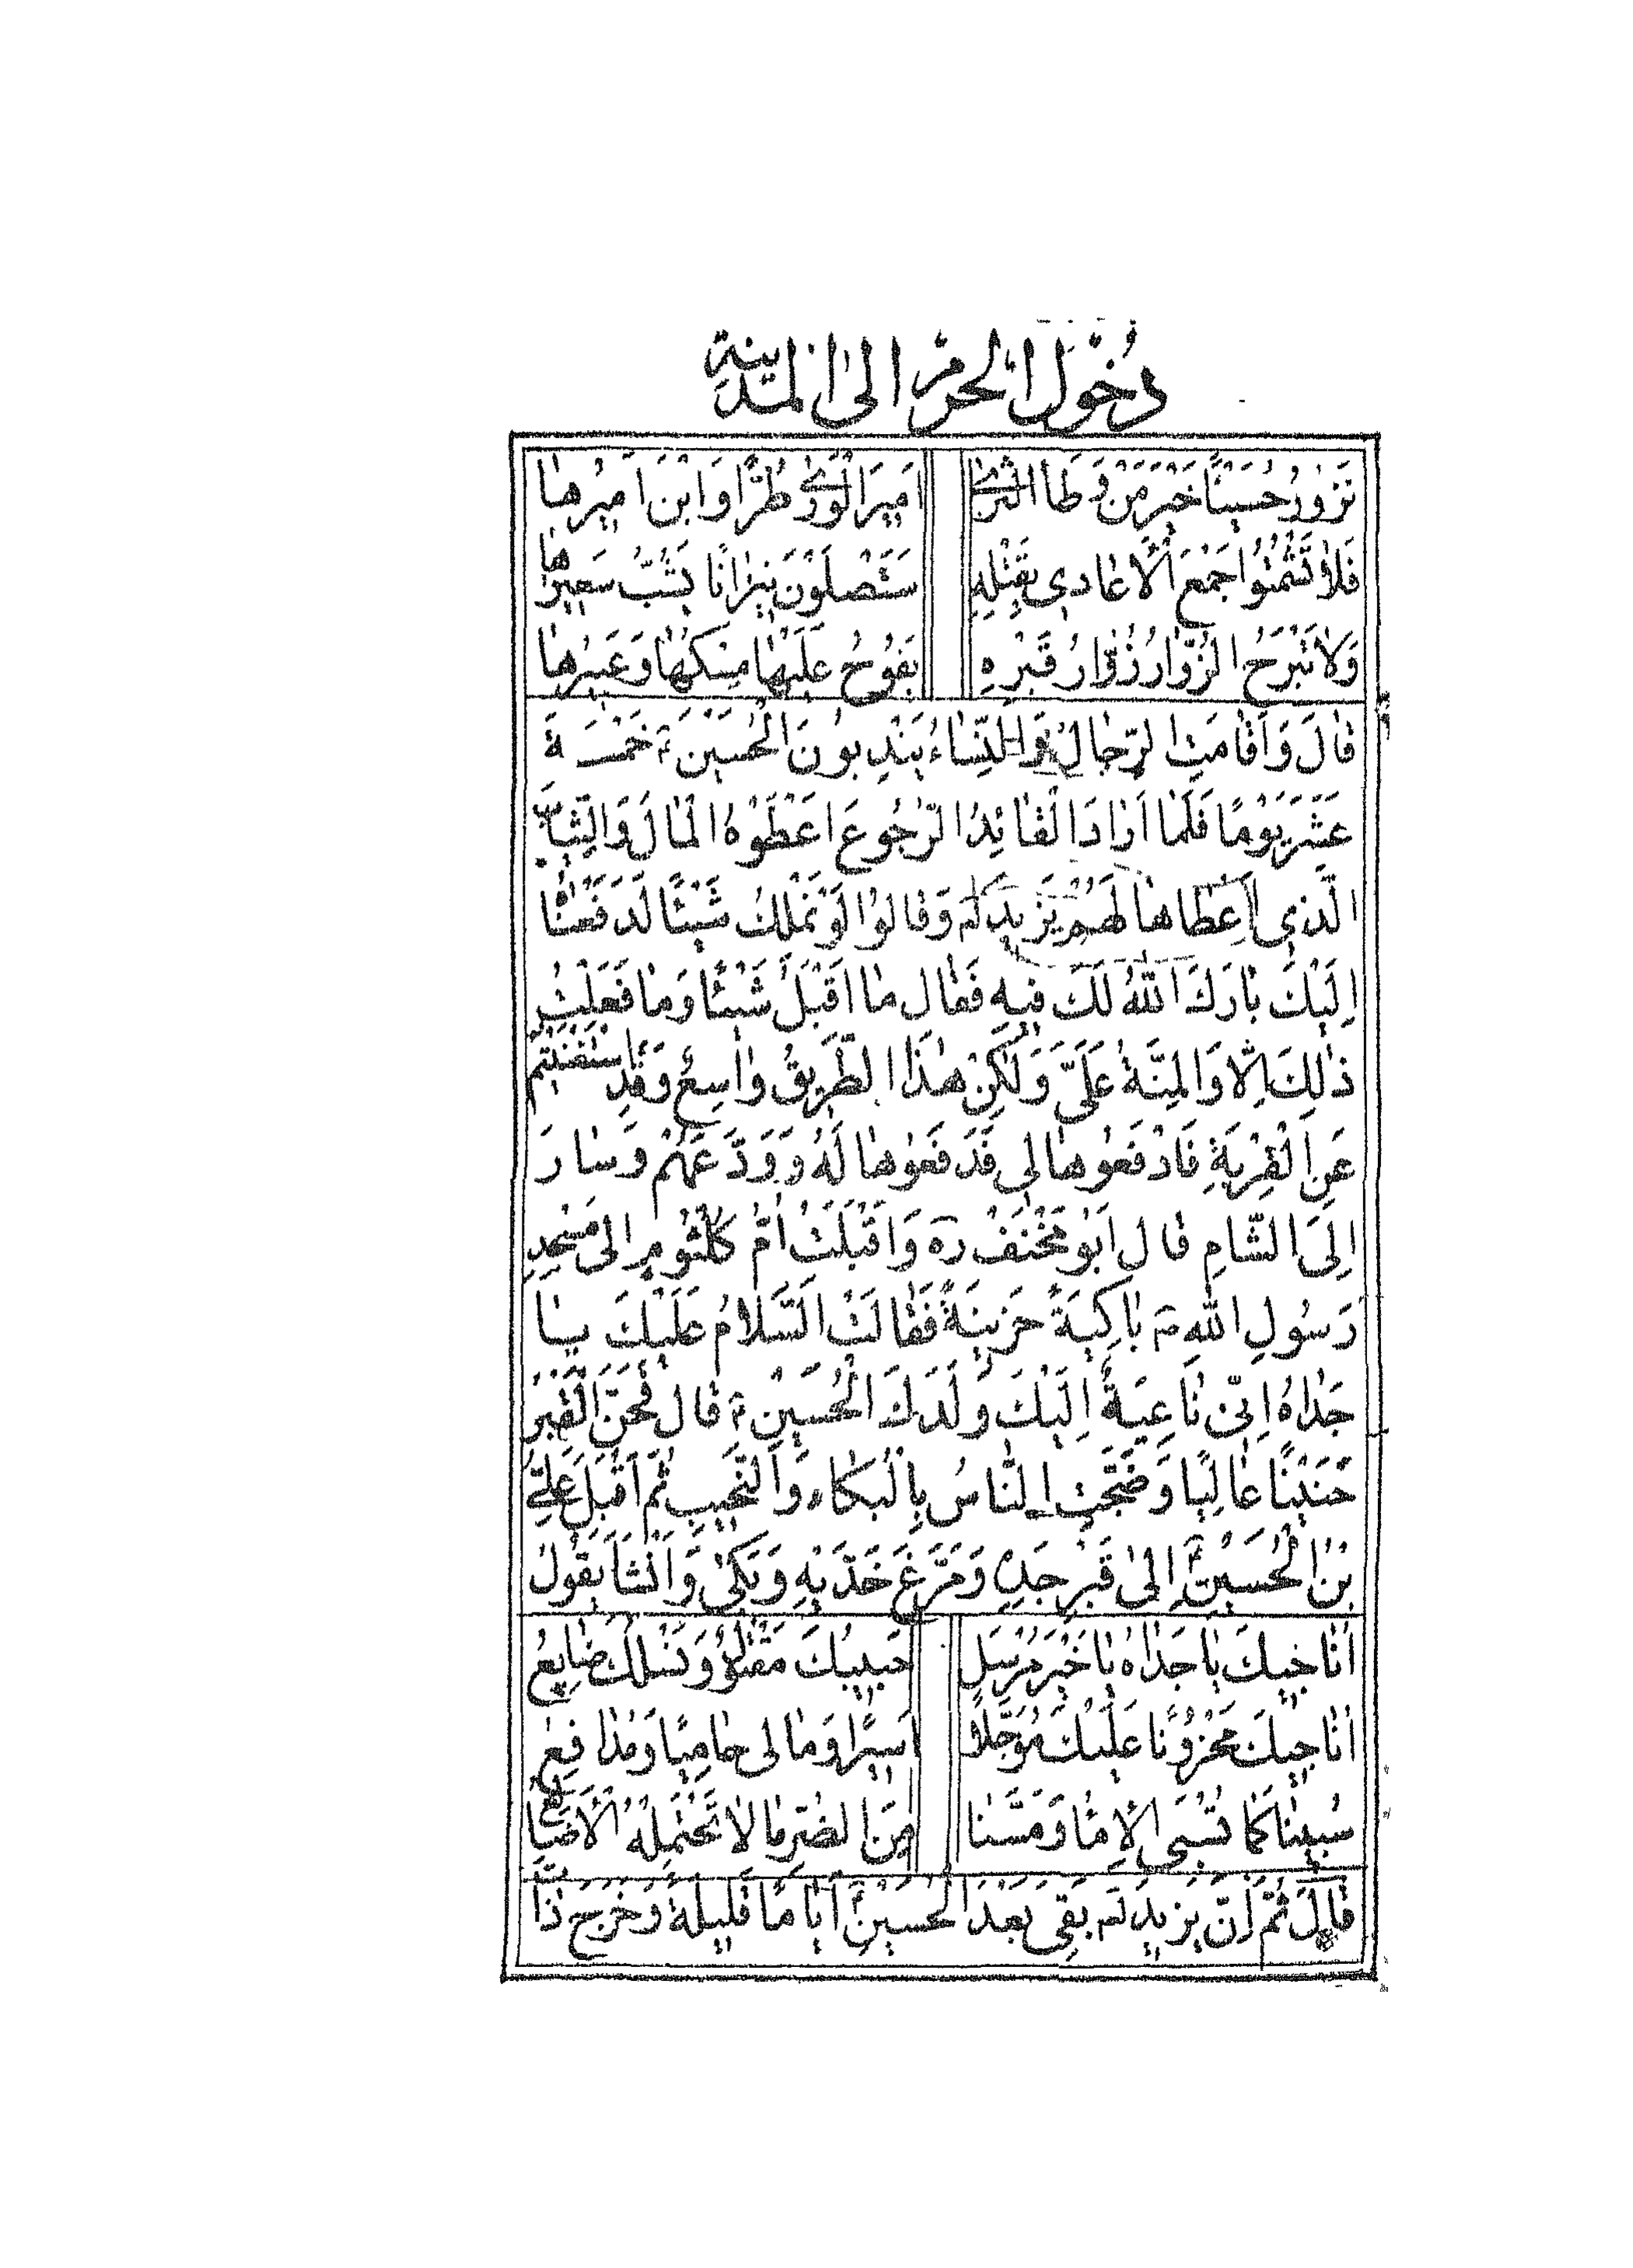 دُخُولُ الْحَرَمِ اِلَى الْمَدِينَةِ
نَزُورُ حُسَيْنًا خَيْرَ مَنْ وَطَأَ الثَّرىٰ اَمِيرَ الْوَرىٰ طُرًّا وَابْنَ اَمِيرِهٰا
فَلاٰ تَشْمَتُوا جَمْعَ الْأَعٰادِى بِقَتْلِهِ سَتَصْلَوْنَ نِيرٰانًا يَشُبُّ سَعِيرُهٰا
وَلاٰ تَبْرَحُ الزُّوّٰارُ زُوّٰارُ قَبْرِهِ يَفُوحُ عَلَيْهٰا مِسْكُهٰا وَعَبِيرُهٰا
قٰالَ وَاَقٰامَتِ الرِّجٰالُ وَالنِّسٰاءُ يَنْدِبُونَ الْحُسَيْنَ ع خَمْسَةَ
عَشَرَ يَوْمًا فَلَمّٰا اَرٰادَ الْقٰائِدُ الرُّجُوعَ اَعْطَوْهُ الْمٰالَ وَالثِّيٰابَ
الَّذِى اَعْطٰاهٰا لَهُمْ يَزِيدُ لَهُ وَقٰالُوا لَوْ نَمْلِكُ شَيْئًا لَدَفَعْنٰا
اِلَيْكَ بٰارَكَ اللّٰهُ لَكَ فِيهِ فَقٰالَ مٰا اَقْبَلُ شَيْئًا وَمٰا فَعَلْتُ
ذٰلِكَ اِلّٰا وَالْمِنَّةُ عَلَىَّ وَلٰكِنْ هٰذَا الطَّرِيقُ وٰاسِعٌ وَقَدِ اسْتَغْنَيْتُمْ
عَنِ الْقِرْبَةِ فَادْفَعُوهٰا لِى فَدَفَعُوهٰا لَهُ وَوَدَّعَهُمْ وَسٰارَ
اِلَى الشّٰامِ قٰالَ اَبُو مِخْنَفْ ره وَاَقْبَلَتْ اُمُّ كُلْثُومٍ اِلىٰ مَسْجِدِ
رَسُولِ اللّٰهِ ص بٰاكِيَةً حَزِينَةً فَقٰالَتْ اَلسَّلاٰمُ عَلَيْكَ يٰا
جَدّٰاهُ اِنِّى نٰاعِيَةٌ اِلَيْكَ وَلَدَكَ الْحُسَيْنَ ع قٰالَ فَحَنَّ الْقَبْرُ
حَنِينًا عٰالِيًا وَضَجَّتِ النّٰاسُ بِالْبُكٰاءِ وَالنَّحِيبِ ثُمَّ اَقْبَلَ عَلِىُّ
بْنُ الْحُسَيْنِ ع اِلىٰ قَبْرِ جَدِّهِ وَمَرَّغَ خَدَّيْهِ وَبَكىٰ وَاَنْشَأَ يَقُولُ
اُنٰاجِيكَ يٰا جَدّٰاهُ يٰا خَيْرَ مُرْسَلٍ حَبِيبُكَ مَقْتُولٌ وَنَسْلُكَ ضٰايِعُ
اُنٰاجِيكَ مَحْزُونًا عَلَيْكَ مُؤَجَّلاً اَسِيرًا وَمٰا لِى حٰامِيًا وَمُدٰافِعُ
سُبِينٰا كَمٰا تُسْبَى الْاِمٰاءُ وَمَسَّنٰا مِنَ الضُّرِّ مٰا لاٰ تَحْتَمِلْهُ الْأَضٰالِعُ
قٰالَ ثُمَّ اِنَّ يَزِيدَ لَمْ يَبْقَى بَعْدَ الْحُسَيْنِ ع اَيّٰامًا قَلِيلَةً وَخَرَجَ ذٰاتَ